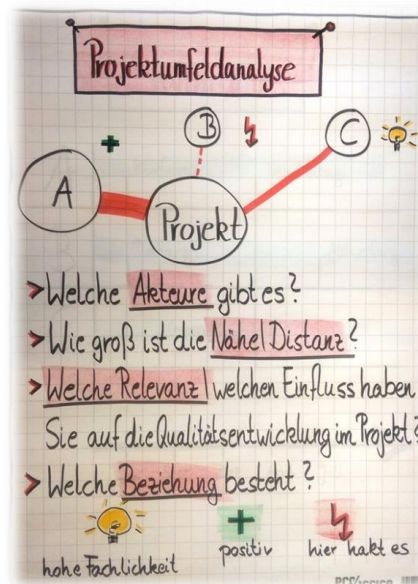 Projektumfeldanalyse
B
C
A
Projekt
Welche Akteure gibt es?
Wie groß ist die Nähe/Distanz?
Welche Relevanz/welchen Einfluss haben
Sie auf die Qualitätsentwicklung im Projekt?
Welche Beziehung besteht?
hohe Fachlichkeit
positiv
hier hakt es